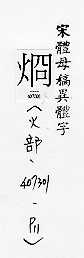 宋體母稿異體字
(火部、407301-P11)